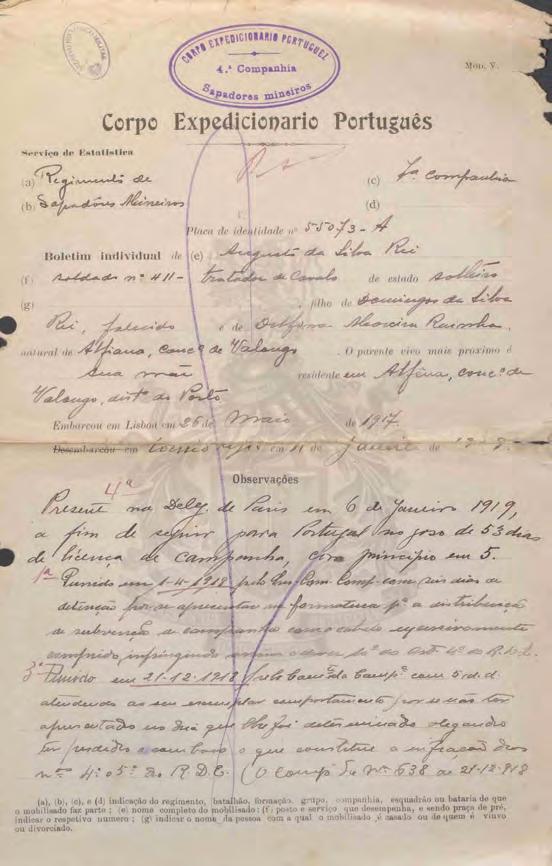 CORPO EXPEDICIONARIO PORTUGUEZ
4.ª Companhia
Sapadores mineiros
Mod. V.
Corpo Expedicionario Português
Serviço de Estatistica
(a) Regimento de (c) companhia
(b) Sapadôres Mineiros (d)
Placa de identidade nº 55073-A
Boletim individual de (e) Augusto da Silva Rei
(f) soldado nº 411 - tratador de Cavalo de estado solteiro
(g) , filho de Domingos da Silva
Rei, falecido e de Moreira
natural de Alfena, conc.º de Valongo . O parente vivo mais proximo é
sua mãe residente em Alfêna, conc.º de
Valongo, dist.º do Porto
Embarcou em Lisboa em 26 de Maio de 1917.
Desembarcou em em 11 de Janeiro de 19
Observações
4ª
Presente na Deleg. de Paris em 6 de Janeiro 1919,
a fim de seguir para Portugal no goso de 53 dias
de licença de campanha, com principio em 5.
1ª Punido em 1-11-1918 pelo Com. Comp. com seis dias de
detenção por se apresentar na formatura pª a distribuição
de subvenção de campanha com o cabelo
comprido, infringindo do artº 4º do R.D.E.
3ª Punido em 21-12-1918 pelo Com.te da Comp.ª com 5 d.d.
atendendo ao seu exemplar comportamento por se não ter
apresentado no que lhe foi determinado alegando
ter perdido o o que constitue a infração dos
n.os 4º e 5º do R.D.E. (O. Comp. de Nº 638 de 21-12-918
(a), (b), (c), e (d) indicação do regimento, batalhão, formação, grupo, companhia, esquadrão ou bataria de que
o mobilisado faz parte ; (e) nome completo do mobilisado: (f) posto e serviço que desempenha, e sendo praça de pré,
indicar o respetivo numero ; (g) indicar o nome da pessoa com a qual o mobilisado é casado ou de quem é viuvo
ou divorciado.